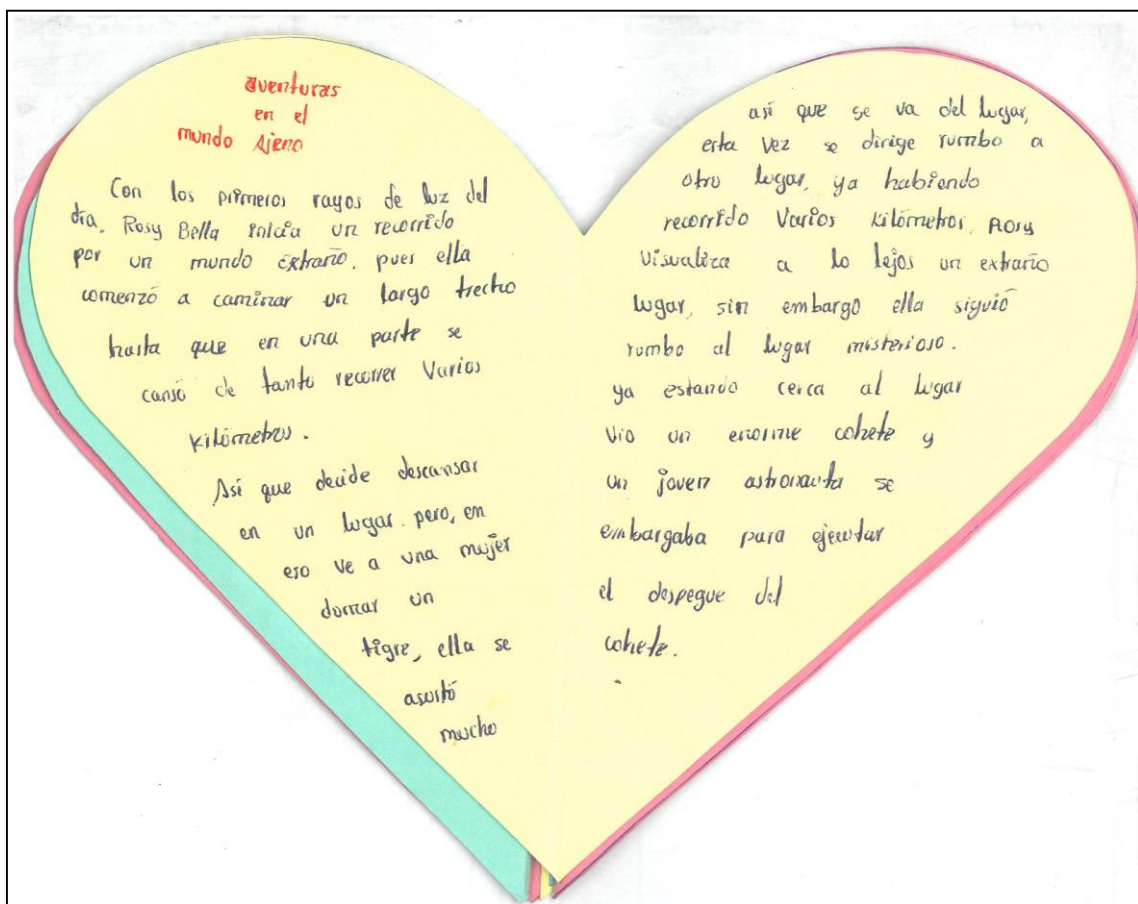 aventuras
en el
mundo Ajeno
Con los primeros rayos de luz del
día, Rosy Bella inicia un recorrido
por un mundo extraño, pues ella
comenzó a caminar un largo trecho
hasta que en una parte se
cansó de tanto recorrer Varios
kilómetros.
Así que decide descansar
en un lugar. pero, en
eso ve a una mujer
domar un
tigre, ella se
asustó
mucho
así que se va del lugar,
esta vez se dirige rumbo a
otro lugar, ya habiendo
recorrido Varios kilómetros, Rosy
visualiza a lo lejos un extraño
lugar, sin embargo ella siguió
rumbo al lugar misterioso.
ya estando cerca al lugar
vio un enorme cohete y
un joven astronauta se
embargaba para ejecutar
el despegue del
cohete.